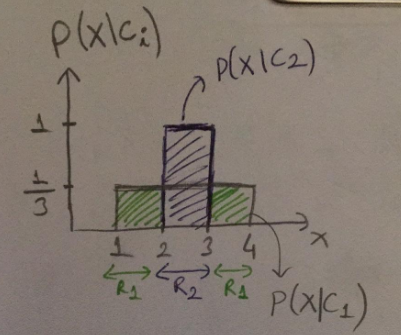 P(x|Ci)
P(x|C2)
1
1/3
1 2 3 4 x
R1 R2 R1
P(x|C1)